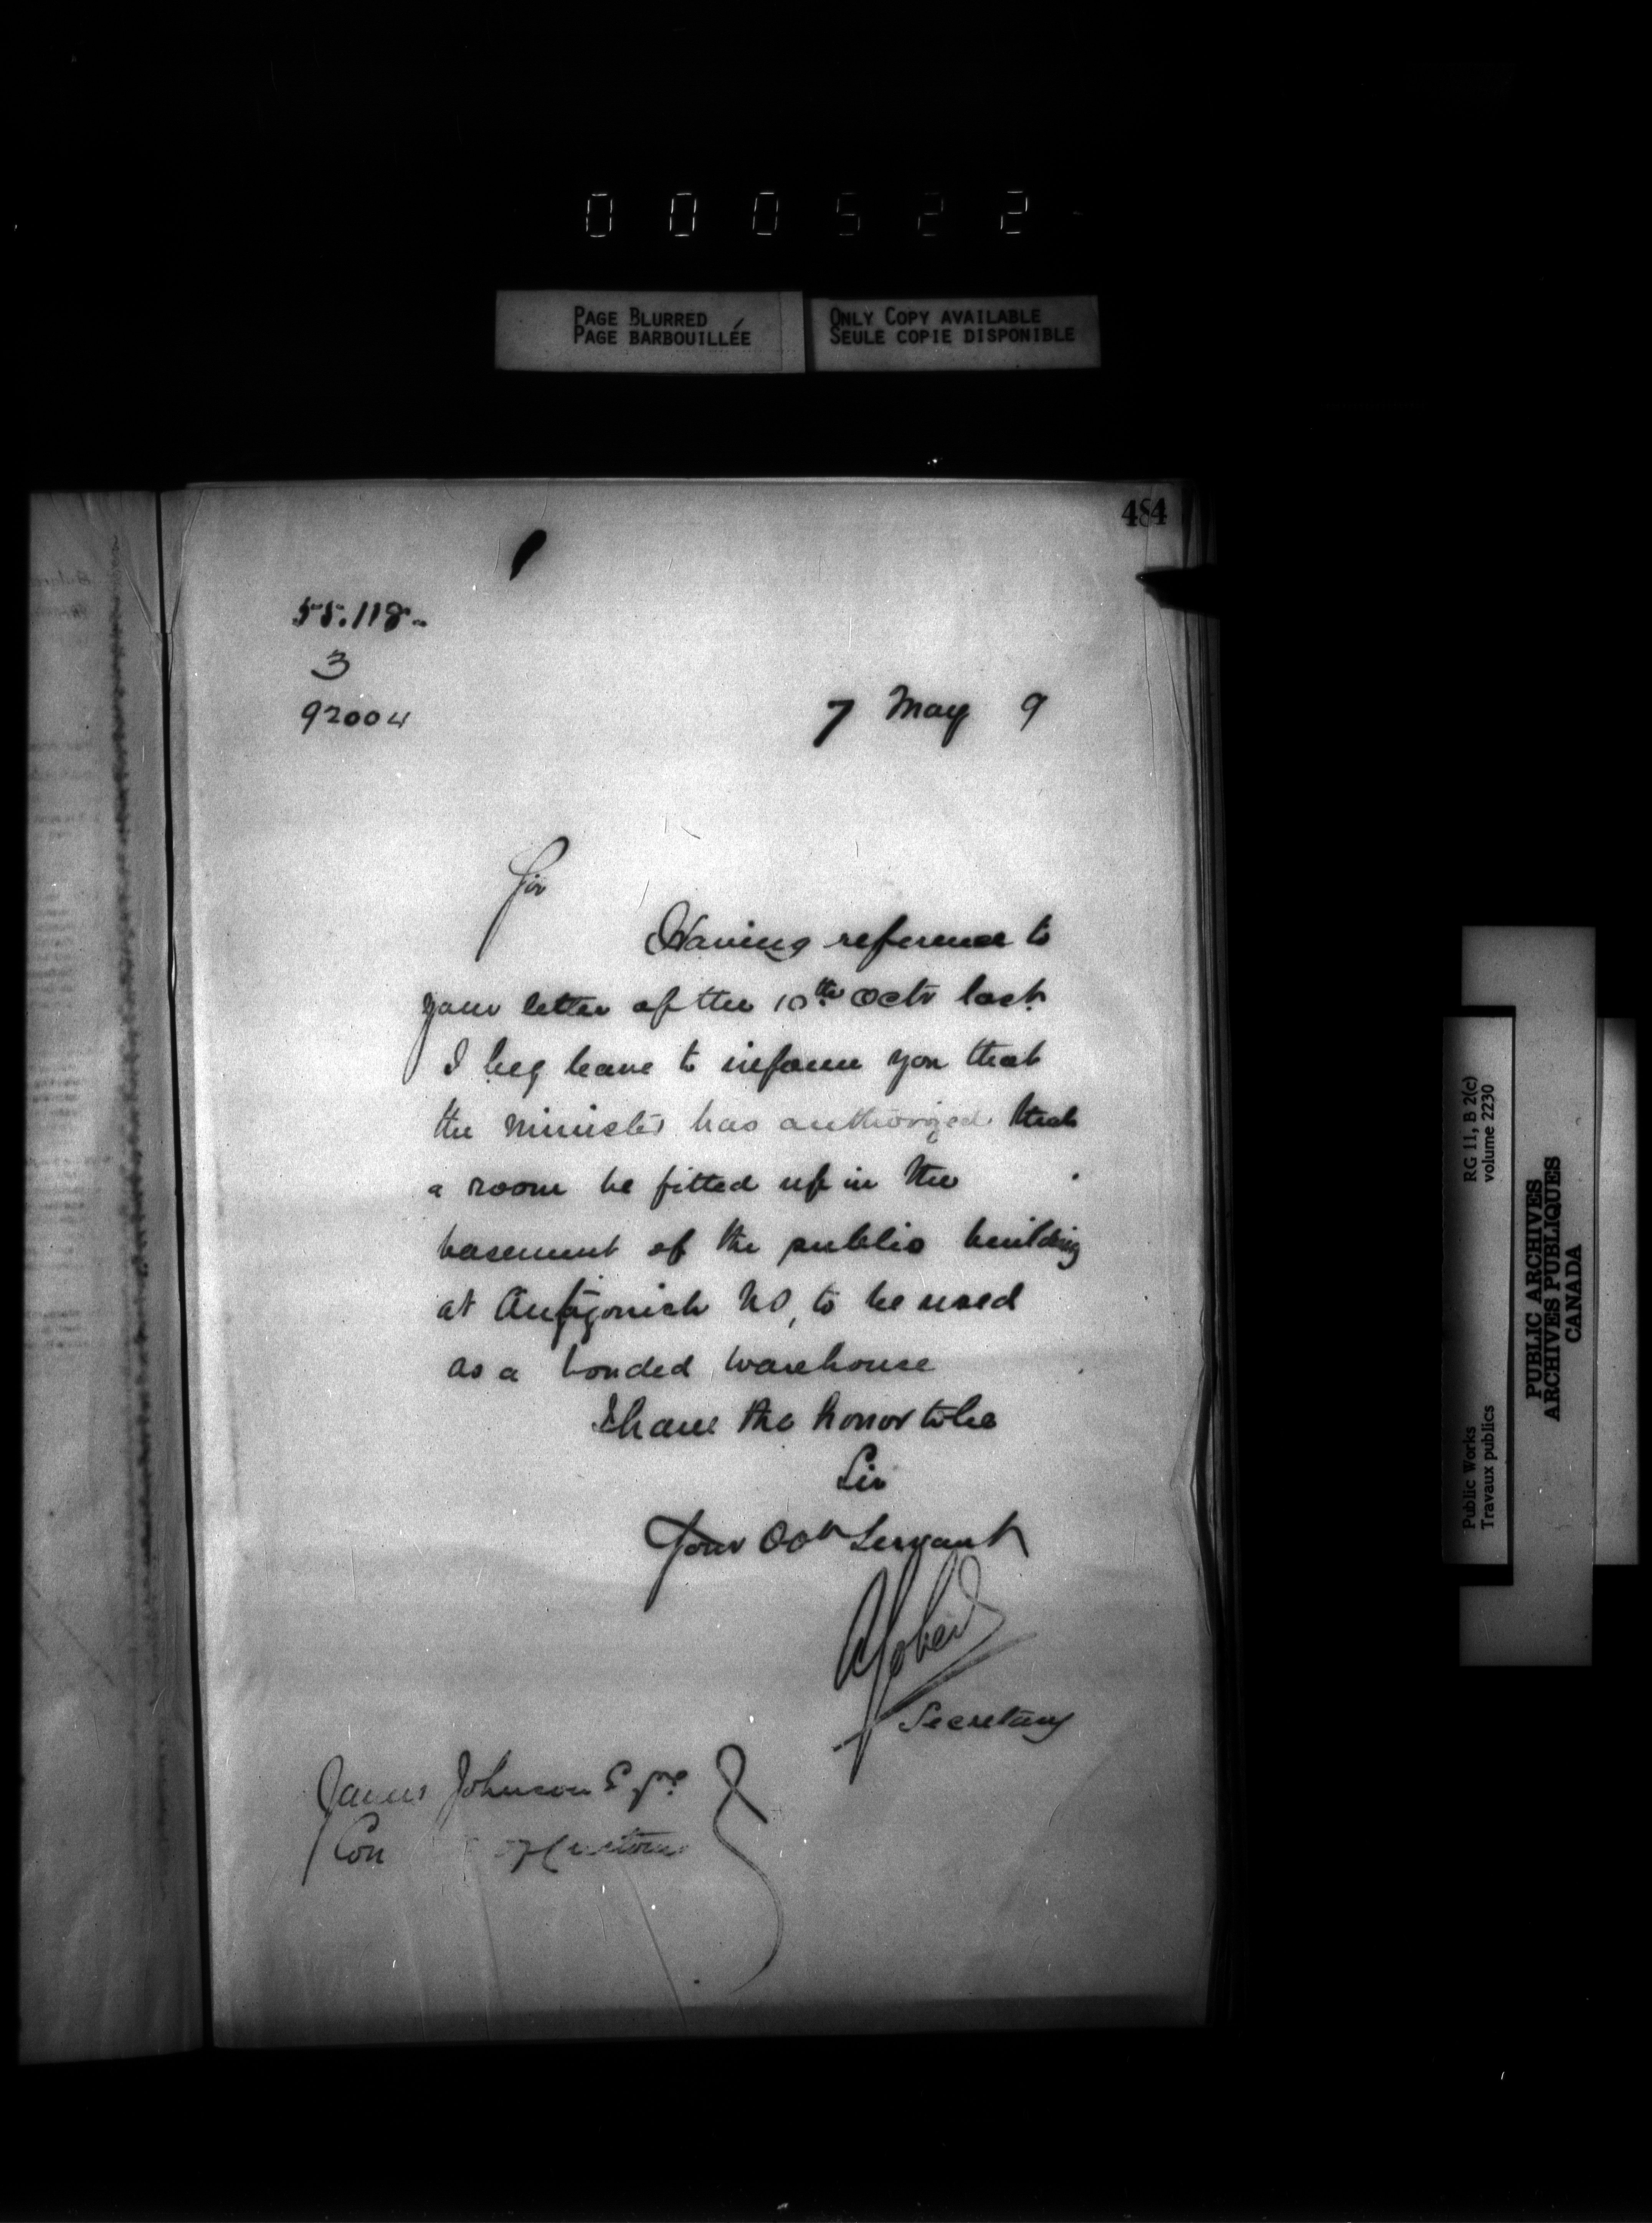 000522
PAGE BLURRED
PAGE BARBOUILLÉE
ONLY COPY AVAILABLE
SEULE COPIE DISPONIBLE
484
55.118
3
92004
7 May 9
Sir
Having reference to
your letter of the 10th Octr last
I beg leave to inform you that
the Minister has authorized that
a room be fitted up in the
basement of the public building
at Antigonish NS, to be used
as a bonded warehouse
I have the honor to be
Sir
Your Obt Servant
AGobeil
Secretary
James Johnson Esqre
Com of Customs
RG 11, B 2(c)
volume 2230
Public Works
Travaux publics
PUBLIC ARCHIVES
ARCHIVES PUBLIQUES
CANADA